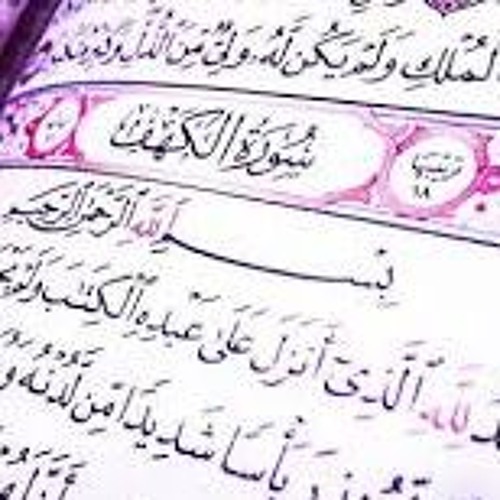 ٱلْمُلْكِ وَلَمْ يَكُن لَّهُۥ وَلِىٌّ مِّنَ ٱلذُّلِّ وَكَبِّرْهُ
سُورَةُ الكَهْفِ
ترتيبها
١٨
بِسْمِ ٱللَّهِ ٱلرَّحْمَٰنِ ٱلرَّحِيمِ
لِلَّهِ ٱلَّذِىٓ أَنزَلَ عَلَىٰ عَبْدِهِ ٱلْكِتَٰبَ وَلَمْ
بَأْسًا شَدِيدًا مِّن لَّدُنْهُ